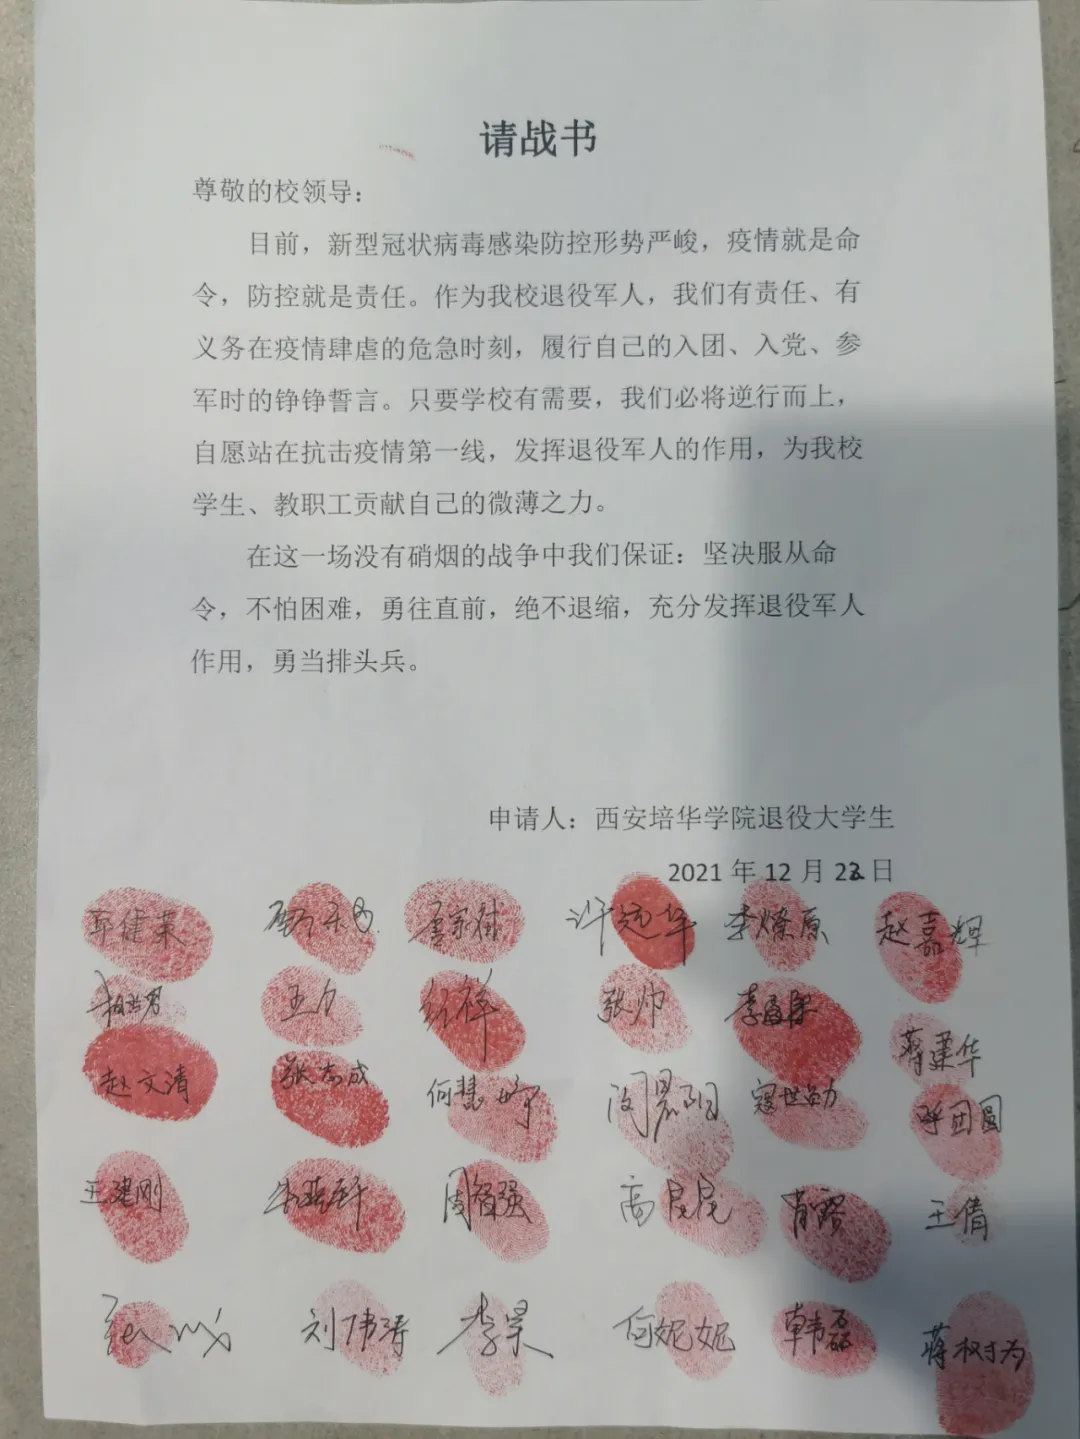 请战书
尊敬的校领导：
目前，新型冠状病毒感染防控形势严峻，疫情就是命
令，防控就是责任。作为我校退役军人，我们有责任、有
义务在疫情肆虐的危急时刻，履行自己的入团、入党、参
军时的铮铮誓言。只要学校有需要，我们必将逆行而上，
自愿站在抗击疫情第一线，发挥退役军人的作用，为我校
学生、教职工贡献自己的微薄之力。
在这一场没有硝烟的战争中我们保证：坚决服从命
令，不怕困难，勇往直前，绝不退缩，充分发挥退役军人
作用，勇当排头兵。
申请人：西安培华学院退役大学生
2021 年 12 月 日
许远华 李燎原 赵嘉辉
王力 张帅
蒋建华
赵文清 张志成 何慧婷 寇世勋
呼团圆
王建刚 周智强 高昆昆 肖 王倩
刘伟涛 李杲 何妮妮 韩磊 蒋树为